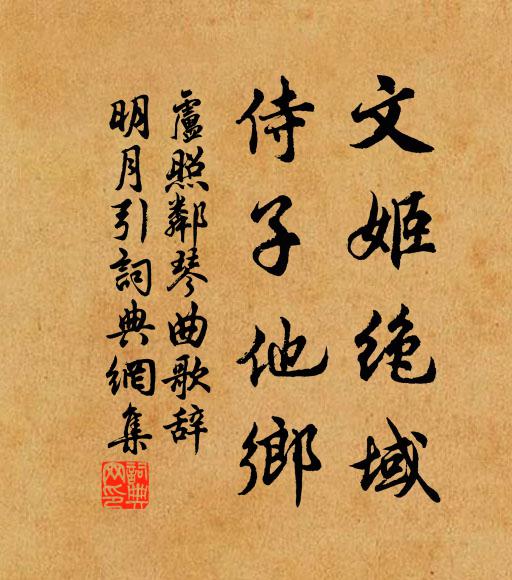 文姬绝域
侍子他鄉
盧照鄰琴曲歌辞
明月引詞典網集
詞典网印